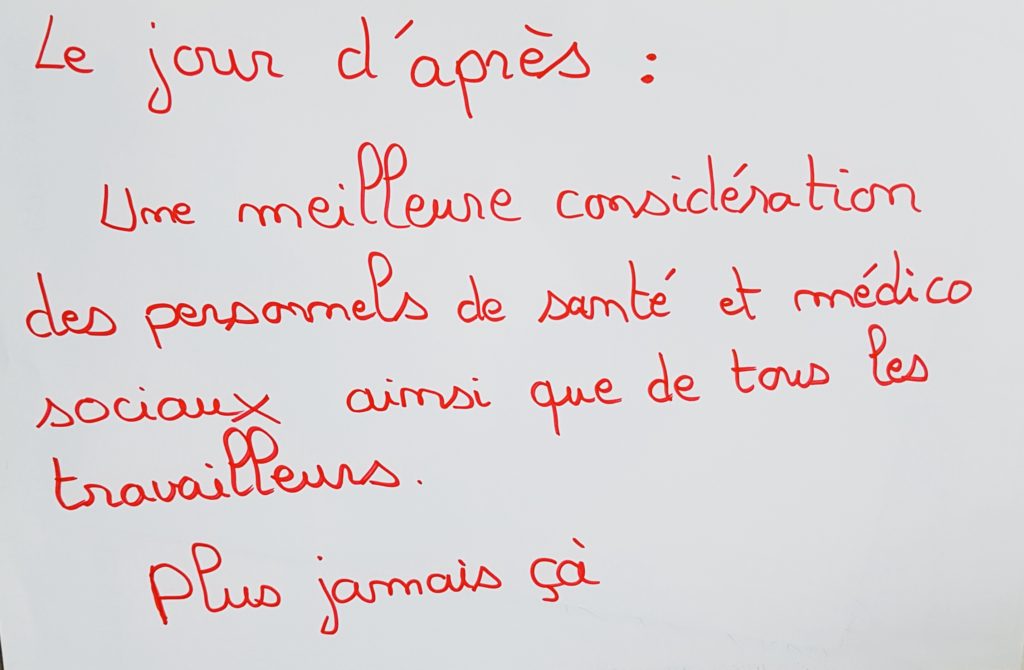 Le jour d'après :
Une meilleure considération
des personnels de santé et médico
sociaux ainsi que de tous les
travailleurs.
Plus jamais çà